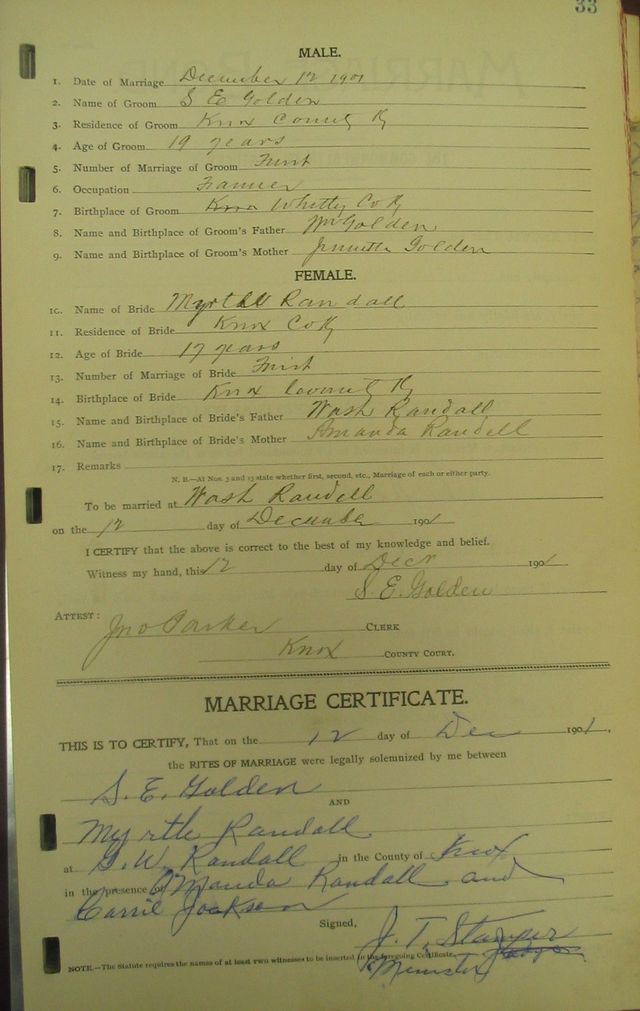 33
MALE.
1. Date of Marriage December 12 1901
2. Name of Groom S E Golden
3. Residence of Groom Knox County Ky
4. Age of Groom 19 years
5. Number of Marriage of Groom First
6. Occupation Farmer
7. Birthplace of Groom Knox Whitty Co Ky
8. Name and Birthplace of Groom's Father Wm Golden
9. Name and Birthplace of Groom's Mother Golden
FEMALE.
10. Name of Bride Myrtle Randall
11. Residence of Bride Knox Co Ky
12. Age of Bride 17 years
13. Number of Marriage of Bride First
14. Birthplace of Bride Knox County Ky
15. Name and Birthplace of Bride's Father Wash Randall
16. Name and Birthplace of Bride's Mother Amanda Randell
17. Remarks
N. B.—At Nos. 5 and 13 state whether first, second, etc., Marriage of each or either party.
To be married at Wash Randell
on the 12 day of December 1901
I CERTIFY that the above is correct to the best of my knowledge and belief.
Witness my hand, this 12 day of Decr 1901
S. E. Golden
ATTEST:
Jno Parker CLERK
Knox COUNTY COURT.
MARRIAGE CERTIFICATE.
THIS IS TO CERTIFY, That on the 12 day of Dec 1901.
the RITES OF MARRIAGE were legally solemnized by me between
S. E. Golden
AND
Myrtle Randall
at G. W. Randall in the County of Knox
in the presence of Amanda Randall and
Carrie Jackson
Signed,
J. T. Stamper
Minister
NOTE.—The Statute requires the names of at least two witnesses to be inserted in the foregoing Certificate.